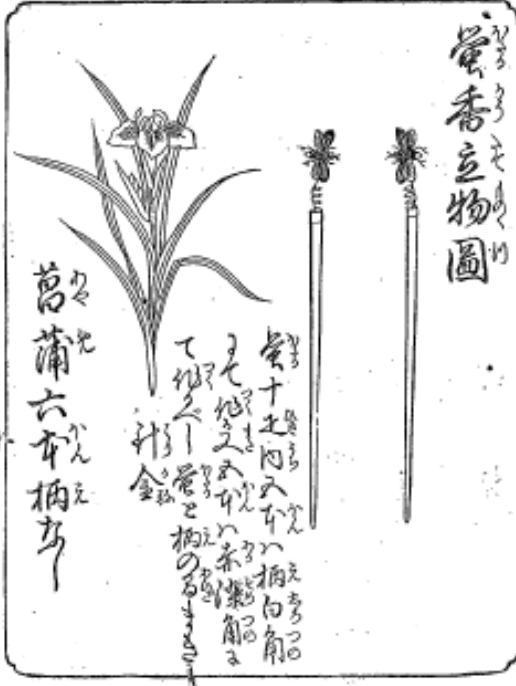 螢香立物圖
螢十疋内五本ハ柄白角
にて作る 五本ハ赤漆角に
て作るべし 螢と柄の
針金
菖蒲六本柄なし